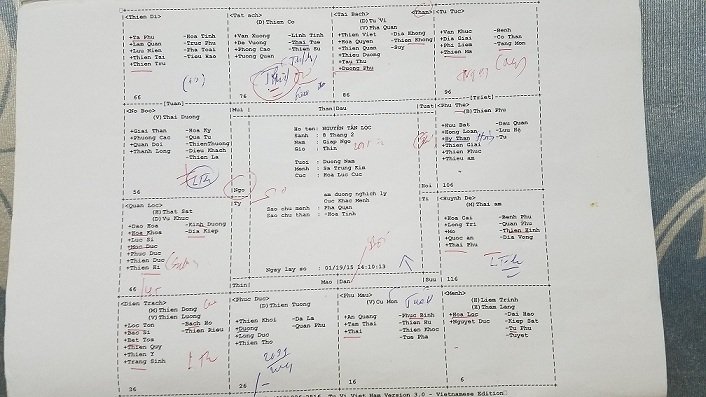 <Thien Di>
+Ta Phu -Hoa Tinh
+Lam Quan -Truc Phu
+Luu Nien -Pha Toai
+Thien Tai -Tieu Hao
+Thien Tru
66
<Tat ach>
(D) Thien Co
+Van Xuong -Linh Tinh
+De Vuong -Thai Tue
+Phong Cao -Thien Su
+Tuong Quan
76
<Tai Bach> (Than)
(D) Tu Vi
(V) Pha Quan
+Thien Viet -Dia Khong
+Hoa Quyen -Thien Khong
+Thien Quan -Suy
+Thieu Duong
+Tau Thu
+Duong Phu
86
<Tu Tuc>
+Van Khuc -Benh
+Dia Giai -Co Than
+Phi Liem -Tang Mon
+Thien Ma
96
[Tuan]
<No Boc>
(V) Thai Duong
+Giai Than -Hoa Ky
+Phuong Cac -Qua Tu
+Quan Doi -ThienThuong
+Thanh Long -Dieu Khach
-Thien La
56
Mui Than Dau Tuat
Ho ten: NGUYỄN TẤN LỘC
Sanh : 8 Thang 2
Nam : Giap Ngo
Gio : Thin
Tuoi : Duong Nam
Menh : Sa Trung Kim
Cuc : Hoa Luc Cuc
am duong nghich ly
Cuc Khac Menh
Sao chu menh : Pha Quan
Sao chu than : -Hoa Tinh
Ngay lay so : 01/19/15 14:10:13
Ngo Hoi
Ty Ti
Thin Mao Dan Suu
[Triet]
<Phu The>
(B) Thien Phu
+Huu Bat -Dau Quan
+Hong Loan -Luu Hà
+Hy Than -Tu
+Thien Giai
+Thien Phuc
+Thieu am
106
<Quan Loc>
(H) That Sat
(D) Vu Khuc
+Dao Hoa -Kinh Duong
+Hoa Khoa -Dia Kiep
+Luc Si
+Moc Duc
+Phuc Duc
+Thien Duc
+Thien Hi
46
<Huynh De>
(M) Thai am
+Hoa Cai -Benh Phu
+Long Tri -Quan Phu
+Mo -Thien Hinh
+Quoc an -Dia Vong
+Thai Phu
116
<Dien Trach>
(M) Thien Dong
(V) Thien Luong
+Loc Ton -Bach Ho
+Bac Si -Thien Rieu
+Bat Toa
+Thien Quy
+Thien Y
+Trang Sinh
36
<Phuc Duc>
(D) Thien Tuong
+Thien Khoi -Da La
+Duong -Quan Phu
+Long Duc
+Thien Tho
26
<Phu Mau>
(V) Cu Mon
+An Quang -Phuc Binh
+Tam Thai -Thien Hu
+Thai -Thien Khoc
-Tue Pha
16
<Menh>
(H) Liem Trinh
(H) Tham Lang
+Hoa Loc -Dai Hao
+Nguyet Duc -Kiep Sat
-Tu Phu
-Tuyet
6
Tu Vi Viet Nam Version 3.0 - Vietnamese Edition